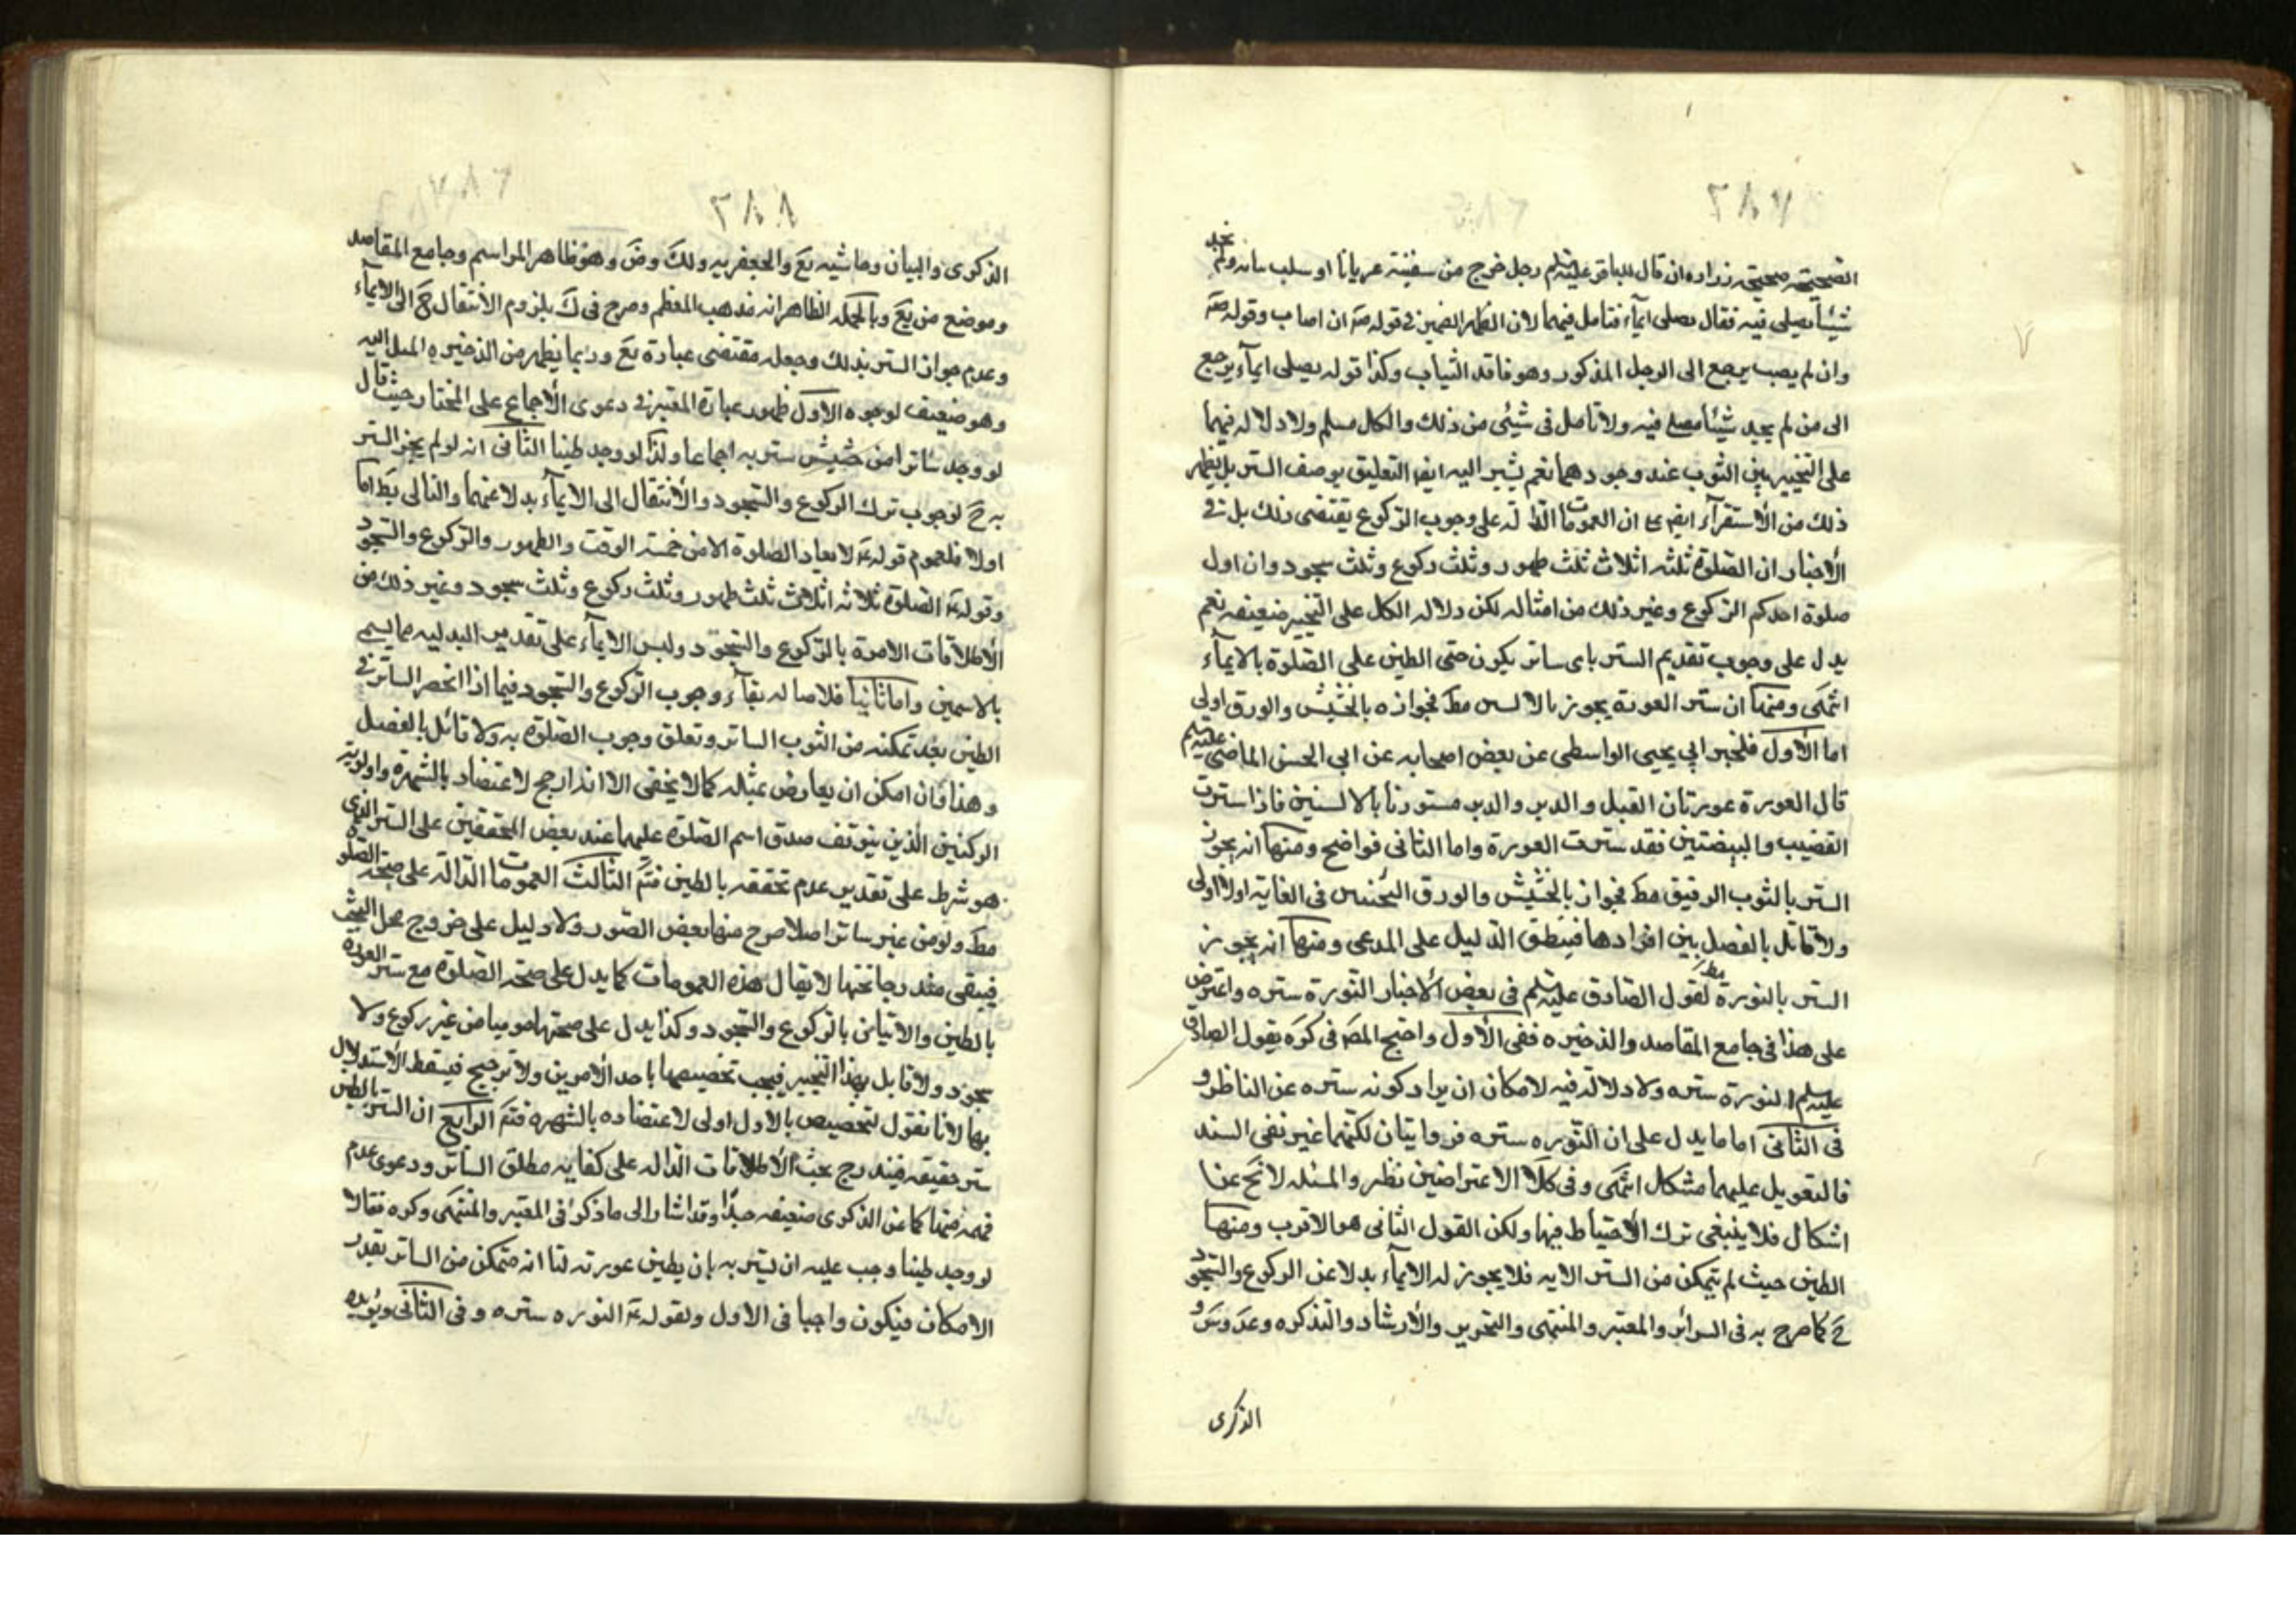 ٢٨٧
الصحيحة صحيحة زراره ان قال للباقر عليه السلم رجل خرج من سفينة عريانا او سلب ثيابه ولم يجد
شيئا يصلي فيه فقال يصلي ايمآء فتامل فيهما لان الظاهر الضمير في قوله ان اصاب وقوله
وان لم يصب يرجع الى الرجل المذكور وهو فاقد الثياب وكذا قوله يصلى ايمآء يرجع
الى من لم يجد شيئا يصلي فيه ولا تامل في شيئ من ذلك والكل مسلم ولا دلاله فيهما
على التخيير بين الثوب عند وجودهما نعم يشير اليه ايضا التعليق بوصف الستر بل يظهر
ذلك من الأستقرآء ان العمومات الدالة على وجوب الركوع يقتضى ذلك بل في
الأخبار ان الصلوة ثلثه اثلاث ثلث طهور وثلث ركوع وثلث سجود وان اول
صلوة احدكم الركوع وغير ذلك من امثاله لكن دلاله الكل على التخيير ضعيفه نعم
يدل على وجوب تقديم الستر باى ساتر يكون حتى الطين على الصلوة بالايمآء
انتهى ومنها ان ستر العورة يجوز بالالس مط فجوازه بالحشيش والورق اولى
اما الأول فلخبر ابي يحيى الواسطى عن بعض اصحابه عن ابي الحسن الماضى عليه السلم
قال العورة عورتان القبل والدبر والدبر مستورة بالاليتين فاذا سترت
القضيب والبيضتين فقد سترت العورة واما الثانى فواضح ومنها انه يجوز
الستر بالثوب الرقيق مط فجواز بالحشيش والورق الثخنين فى الغاية اولا اولى
ولا قائل بالفصل بين افرادها فينطق الدليل على المدعى ومنها انه يجوز
الستر بالنورة مط لقول الصادق عليه السلم في بعض الأخبار النورة ستره واعترض
على هذا فى جامع المقاصد والذخيره ففى الأول واحتج المص فى كره بقول الصادق
عليه السلم النورة ستره ولا دلالة فيه لامكان ان يراد كونه ستره عن الناظر و
فى الثانى اما ما يدل على ان النوره ستره فروايتان لكنهما غير نفى السند
فالتعويل عليهما مشكال انتهى وفى كلا الاعتراضين نظر والمسئله لا تخ عن
اشكال فلا ينبغى ترك الأحتياط فيها ولكن القول الثانى هو الاقرب ومنها
الطين حيث لم يتمكن من الستر الا به فلا يجوز له الايمآء بدلا عن الركوع والسجود
ح كما صرح به فى السرائر والمعتبر والمنتهى والتحرير والأرشاد والتذكره وعد وس و
الذكرى
٢٨٨
الذكرى والبيان وحاشيه يع والجعفريه ولك وض وهو ظاهر المراسم وجامع المقاصد
وموضع من يع وبالجمله الظاهر انه مذهب المعظم وصرح فى ك بلزوم الأنتقال ح الى الايمآء
وعدم جواز الستر بذلك وجعله مقتضى عبارة يع وربما يظهر من الذخيره الميل اليه
وهو ضعيف لوجوه الأول ظهور عبارة المعتبر في دعوى الأجماع على المختار حيث قال
لو وجد ساترا من حشيش ستر به اجماعا ولذا لو وجد طينا الثانى انه لو لم يجز الستر
به ح لوجوب ترك الركوع والسجود والأنتقال الى الايمآء بدلا عنهما والتالى بط اما
اولا فلعموم قوله لا يعاد الصلوة الا من خمسة الوقت والطهور والركوع والسجود
وقوله الصلوة ثلاثه اثلاث ثلث طهور وثلث ركوع وثلث سجود وغير ذلك من
الأطلاقات الامرة بالركوع والسجود وليس الايمآء على تقدير البدليه مما يسمى
بالاسمين واما ثانيا فلاصاله بقآء وجوب الركوع والسجود فيما اذا انحصر الساتر في
الطين بعد تمكنه من الثوب الساتر وتعلق وجوب الصلوة به ولا قائل بالفصل
وهذا وان امكن ان يعارض بمثله كما لا يخفى الا انه ارجح لاعتضاد بالشهرة واولوية
الركنين الذين يتوقف صدق اسم الصلوة عليهما عند بعض المحققين على الستر الذى
هو شرط على تقدير عدم تحققه بالطين فتم الثالث العمومات الدالة على صحة الصلوة
مط ولو من غير ساتر اصلا صرح منها بعض الصور ولا دليل على خروج محل البحث
فيبقى مندرجا تحتها لا يقال هذه العمومات كما يدل على صحة الصلوة مع ستر العورة
بالطين والاتيان بالركوع والسجود وكذا يدل على صحتها موميا من غير ركوع ولا
سجود ولا قايل بهذا التخيير فيجب تخصيصها باحد الأمرين ولا ترجيح فيسقط الأستدلال
بها لانا نقول لتخصيص بالاول اولى لاعتضاده بالشهره فتم الرابع ان الستر بالطين
ستر حقيقه فيندرج تحت الأطلاقات الداله على كفايه مطلق الساتر ودعوى عدم
فهمه منها كما عن الذكرى ضعيفه جدا وقد اشار الى ما ذكر في المعتبر والمنتهى وكره فقالا
لو وجد طينا وجب عليه ان يستتر به بان يطين عورته لنا انه متمكن من الساتر بقدر
الامكان فيكون واجبا فى الاول ولقوله النوره ستره وفى الثانى ويؤيده